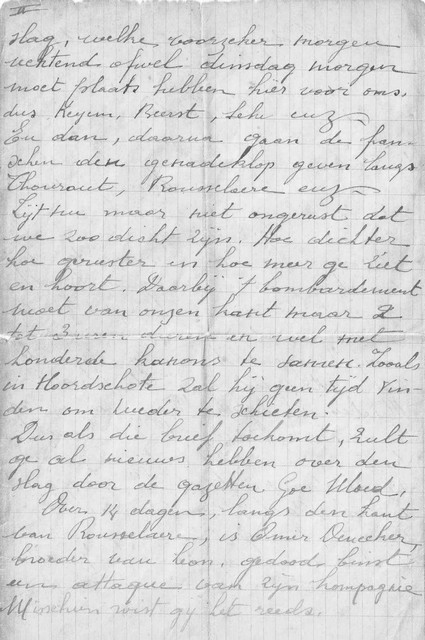 II
slag, welke voorzeker morgen
uchtend ofwel dinsdag morgen
moet plaats hebben hier voor ons.
dus Keyem, Beerst, Leke enz
En dan, daarna gaan de fran-
schen den genadeklop geven langs
Thourout, Rousselaere enz
Zijt nu maar niet ongerust dat
we zoo dicht zijn. Hoe dichter
hoe geruster en hoe meer ge ziet
en hoort. Daarbij 't bombardement
moet van onzen kant maar 2
tot 3 uren duren en wel met
honderde kanons te samen. Zooals
in Noordschote zal hij geen tijd vin-
den om weder te schieten.
Dus als die brief toekomt, zult
ge al nieuws hebben over den
slag door de gazetten Goe Moed,
Over 14 dagen, langs den kant
van Rousselaere, is Omer
broeder van Leon. gedood binst
een attaque van zijn kompagnie
Misschien wist gij het reeds.